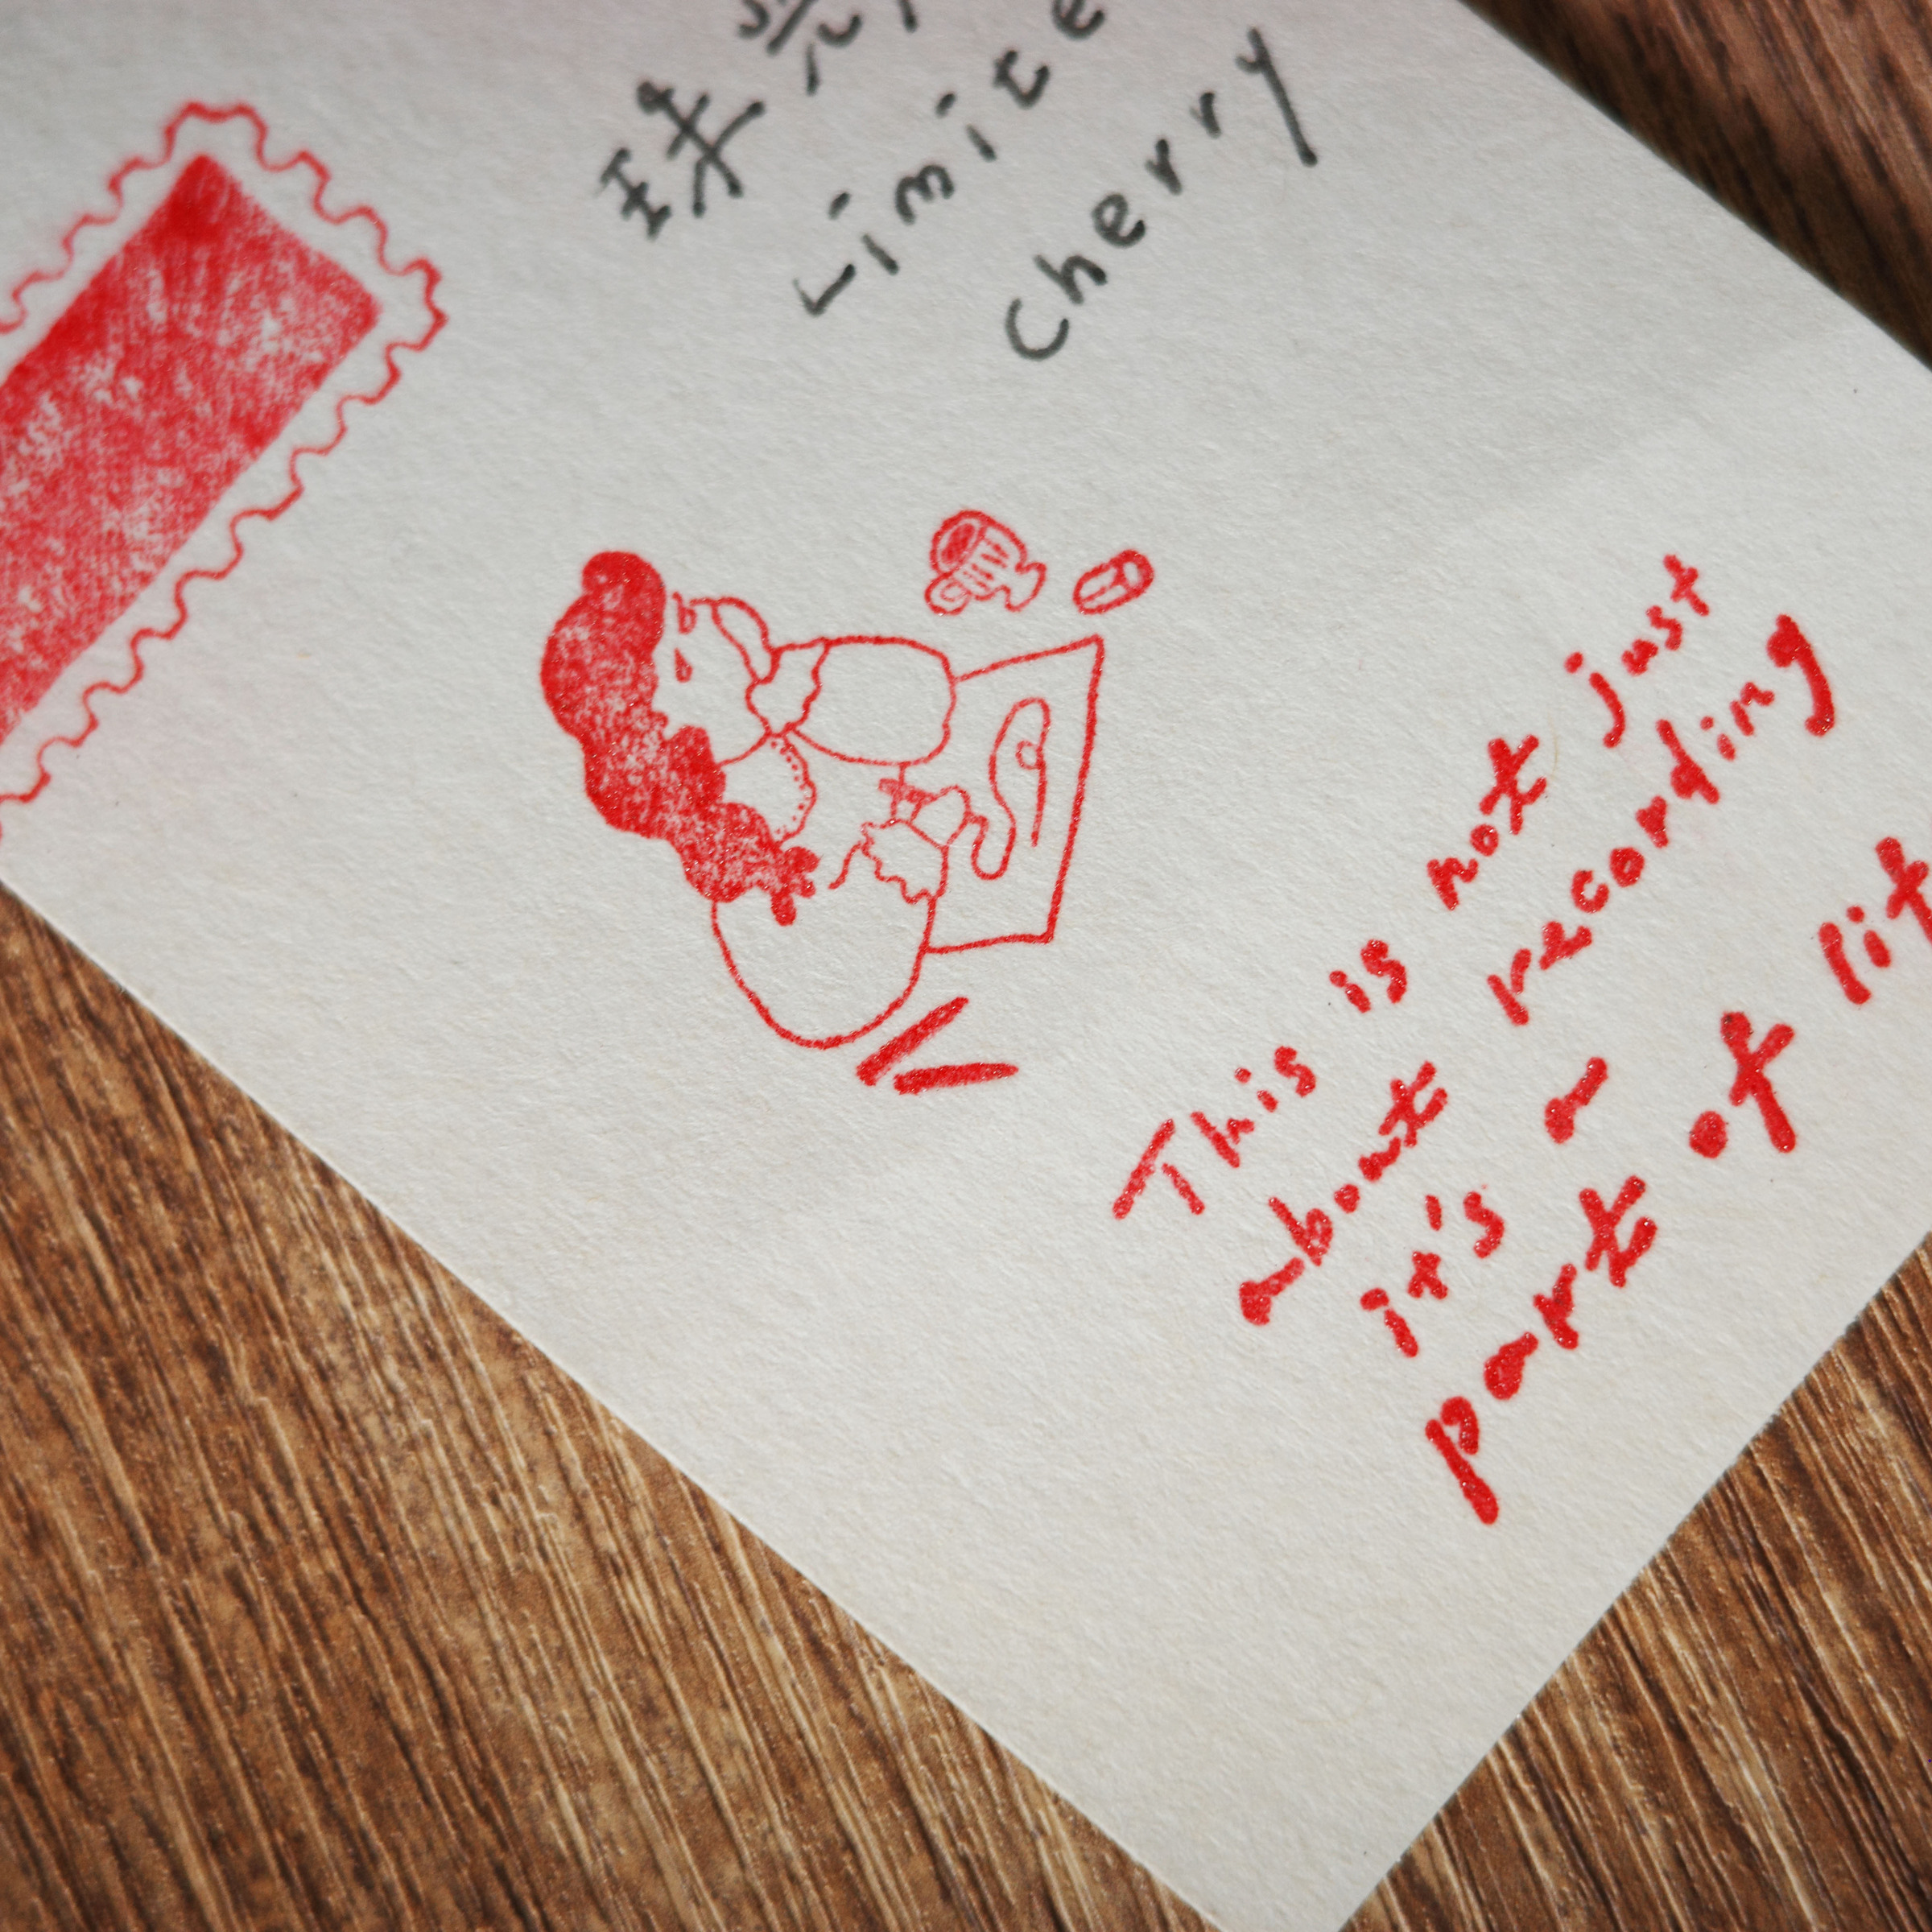 珠光
Limite
Cherry
This is not just
about recording
it's a
part of lit